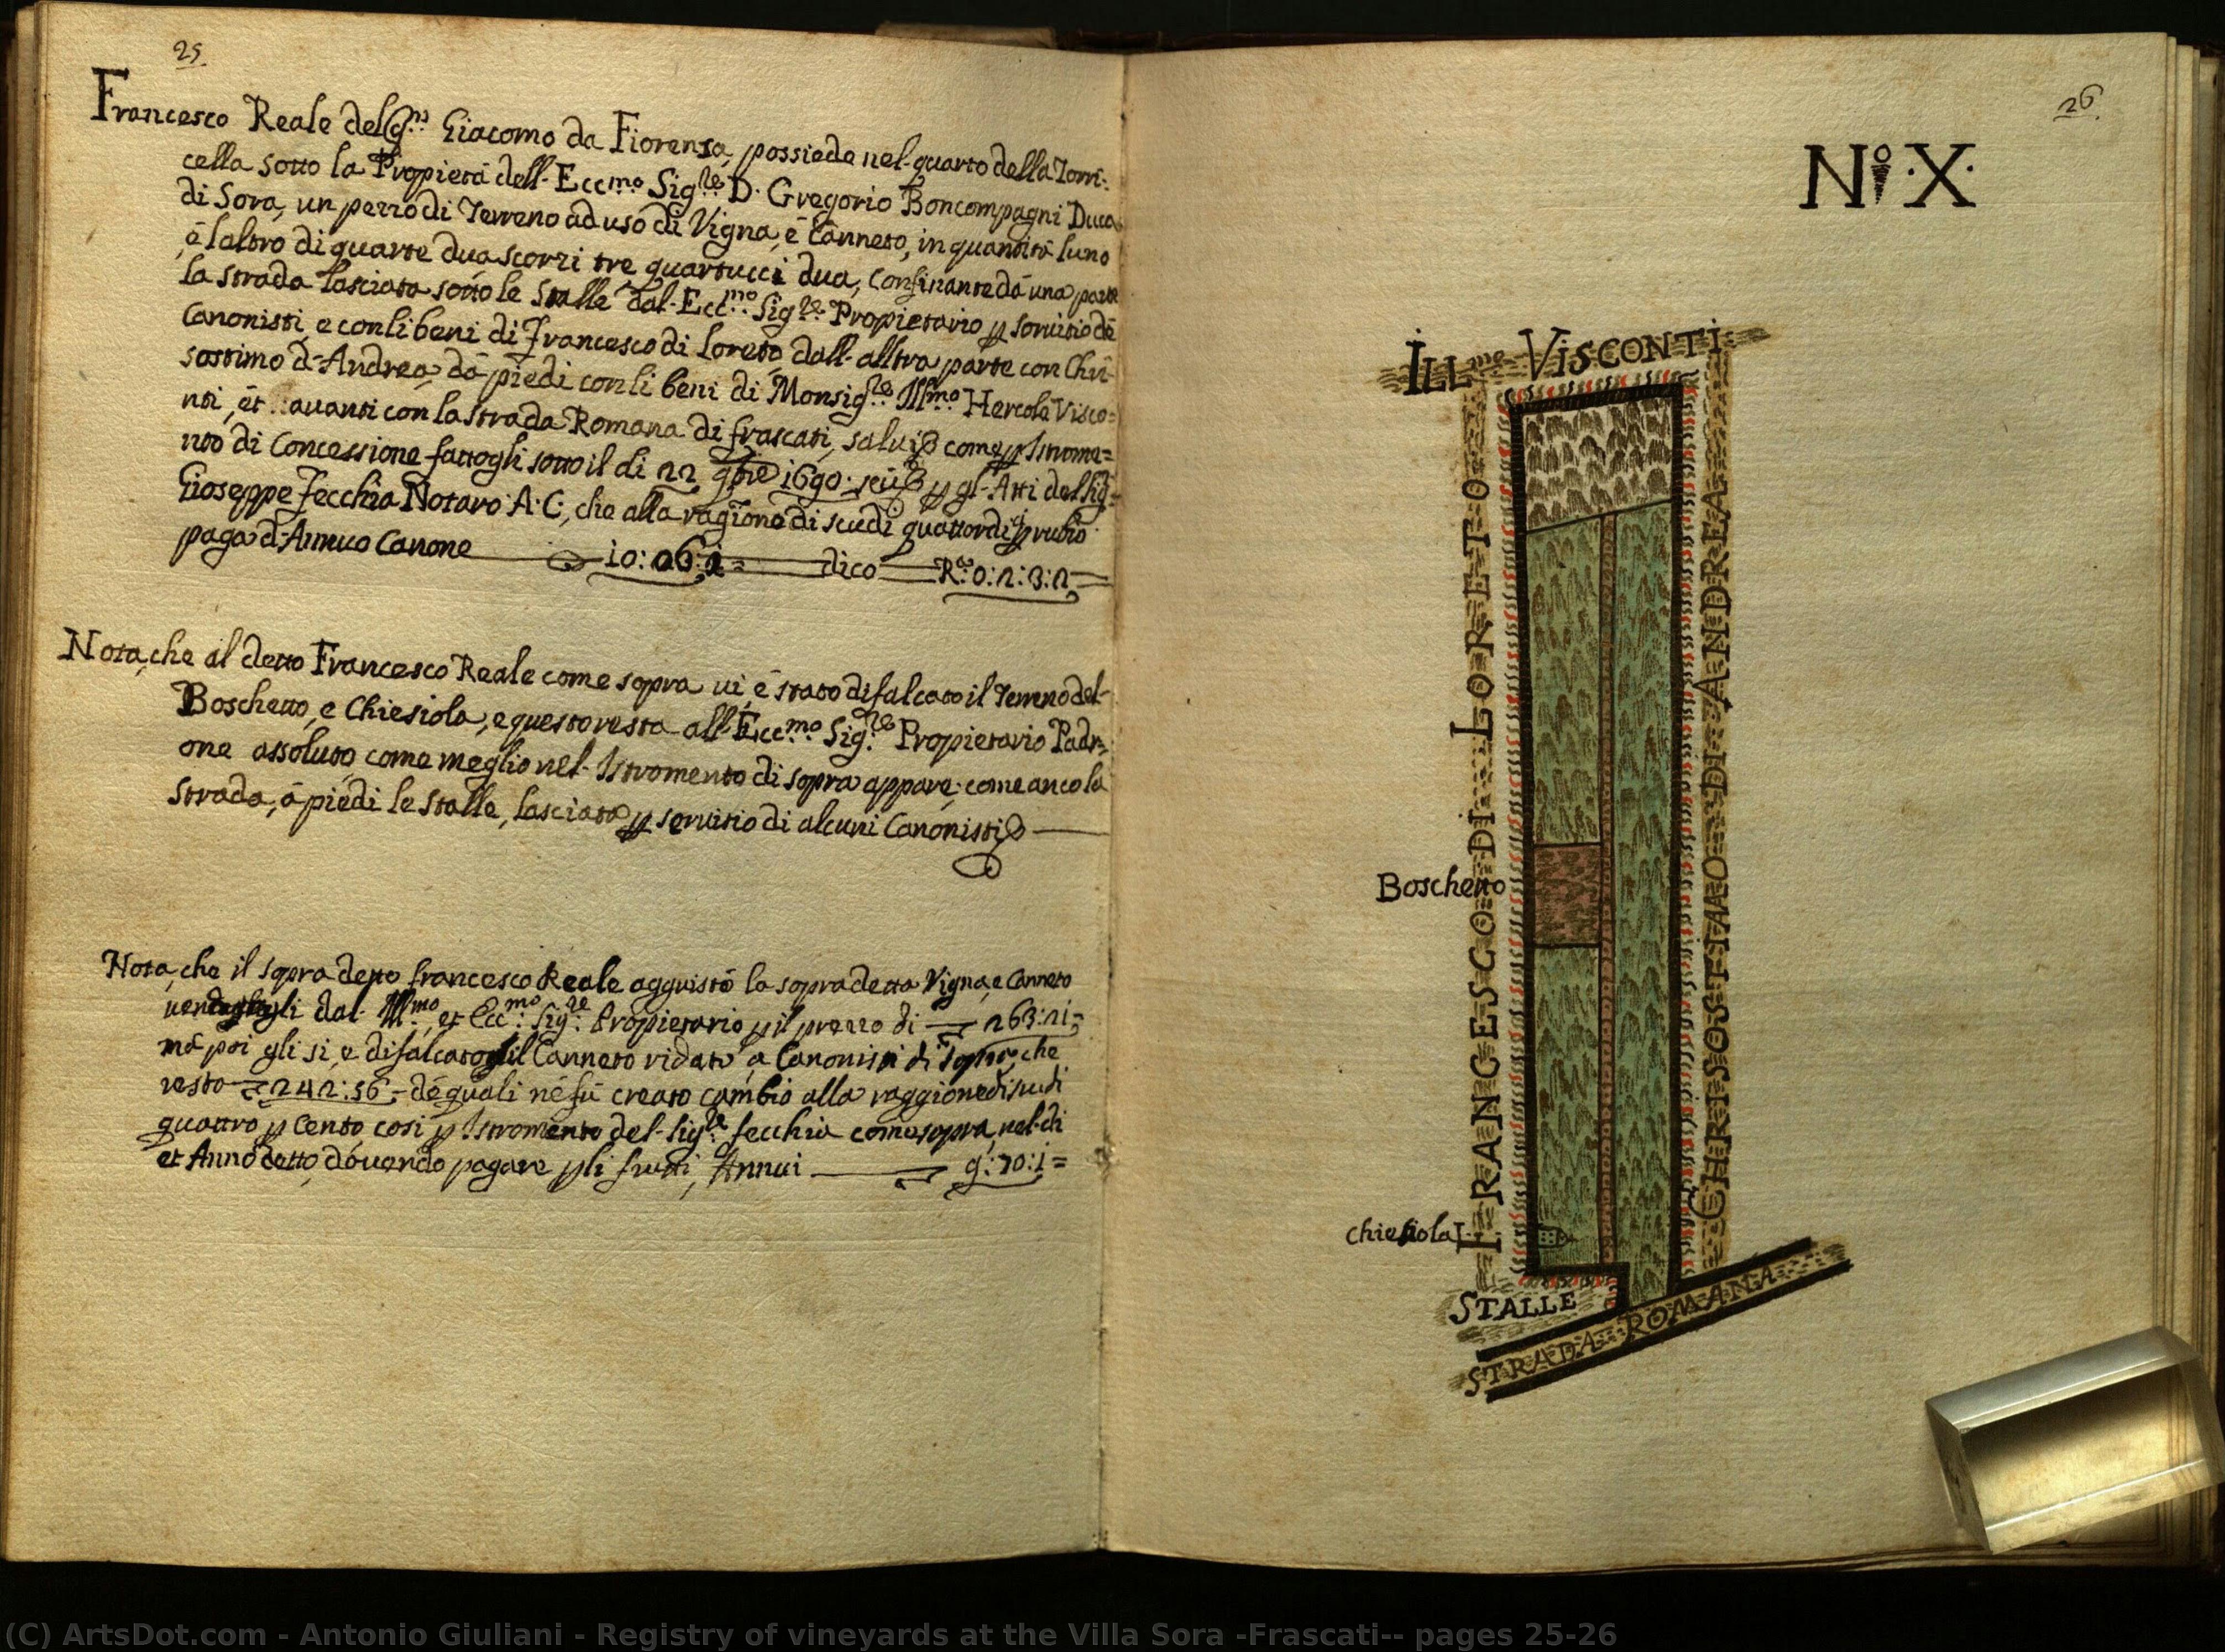 25.
Francesco Reale del qm Giacomo da Fiorenza, possiede nel quarto della Torri:
cella sotto la Propietà dell Eccmo Sigre D. Gregorio Boncompagni Duca
di Sora, un pezzo di Terreno ad uso di Vigna, è Canneto, in quantità luno
è laltro di quarte dua scorzi tre quartucci dua, confinante dà una parte
la strada lasciata sotto le Stalle dal Eccmo Sigre Propietario p servitio dè
Canonisti, e con li beni di Francesco di Loreto, dall altra parte con Chri
sostimo d'Andrea, dà piedi con li beni di Monsigre Illmo Hercole Visco=
nti, èt avanti con la strada Romana di frascati, salui come p Istrome=
nto di Concessione fattogli sotto il di 22 9bre 1690. p gl Atti del Sig=
Gioseppe Fecchia Notaro A. C., che alla ragione di scudi quattordi p rubio
paga d'Annuo Canone 10: 06: 2 = dico Ra 0: 2: 3: 2
Nota, che al detto Francesco Reale come sopra ui è stato difalcato il Terreno del
Boschetto, e Chiesiola, e questo resta all Eccmo Sigre Propietario Padr=
one assoluto, come meglio nel Istromento di sopra appare, come anco la
strada, à piedi le Stalle, lasciata p seruitio di alcuni Canonisti
Nota, che il sopra detto francesco Reale aqquistò la sopradetta Vigna, e Canneto
gli dal Illmo et Eccmo Sigre Propietario p il prezzo di 263: 21=
mà poi gli si è difalcato il Canneto ridato a Canonisti di sopra, che
resta 242: 56 dè quali nè fù creato cambio alla raggione di scudi
quattro p Cento, cosi p Istromento del Sigre fecchia come sopra nel di
et Anno detto, douendo pagare p li frutti, Annui 9: 70: 1=
26.
No X.
Illmo Visconti
FRANCESCO DI LORETO
CHRISOSTIMO DI ANDREA
Boschetto
Chiesiola
STALLE
STRADA ROMANA
(C) ArtsDot.com - Antonio Giuliani - Registry of vineyards at the Villa Sora -Frascati-- pages 25-26